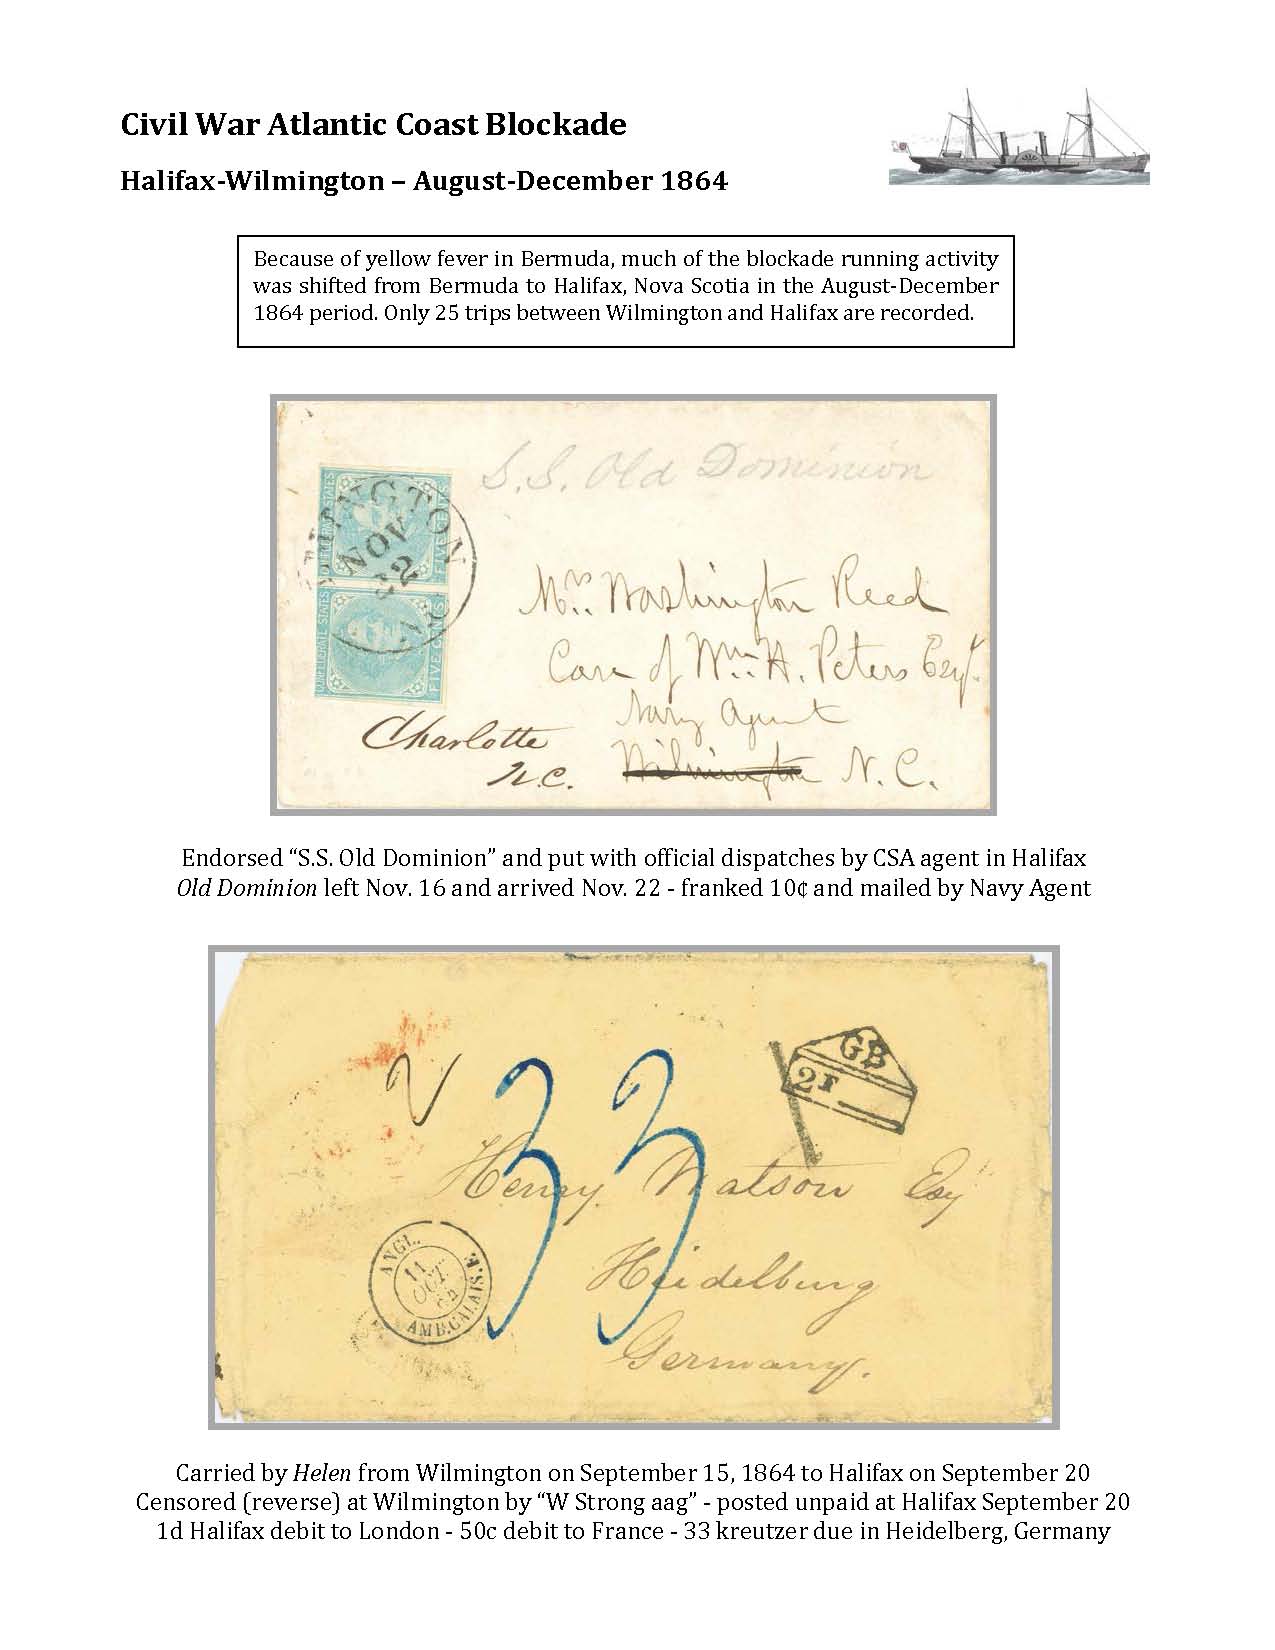 Civil War Atlantic Coast Blockade
Halifax-Wilmington – August-December 1864
Because of yellow fever in Bermuda, much of the blockade running activity
was shifted from Bermuda to Halifax, Nova Scotia in the August-December
1864 period. Only 25 trips between Wilmington and Halifax are recorded.
S.S. Old Dominion
CONFEDERATE STATES
FIVE CENTS
CONFEDERATE STATES
FIVE CENTS
MINGTON
NOV
22
N.C.
Mrs. Washington Reed
Care of Wm. H. Peters Esqr.
Navy Agent
Wilmington N.C.
Charlotte
N.C.
Endorsed “S.S. Old Dominion” and put with official dispatches by CSA agent in Halifax
Old Dominion left Nov. 16 and arrived Nov. 22 - franked 10¢ and mailed by Navy Agent
33
GB
2F
Henry Watson Esq
Heidelburg
Germany.
ANGL.
11
OCT.
AMB.CALAIS.E
Carried by Helen from Wilmington on September 15, 1864 to Halifax on September 20
Censored (reverse) at Wilmington by “W Strong aag” - posted unpaid at Halifax September 20
1d Halifax debit to London - 50c debit to France - 33 kreutzer due in Heidelberg, Germany